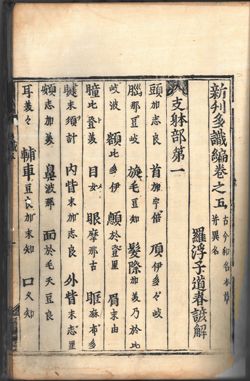 新刊多識編卷之五 古今和名本草并異名
羅浮子道春諺解
支躰部第一
頭加志良 首加宇倍 項伊多々岐
腦那豆岐 旋毛豆知 髮際加美乃於比
岐波 額比多伊 顏於登里 肩末由
瞳比登美 目女 眼摩那古 眶麻布多
睫末須計 內眥末加之良 外眥末志里
頰志加美 鼻波那 面於毛天豆良
耳美々 輔車豆良加末知 口久知